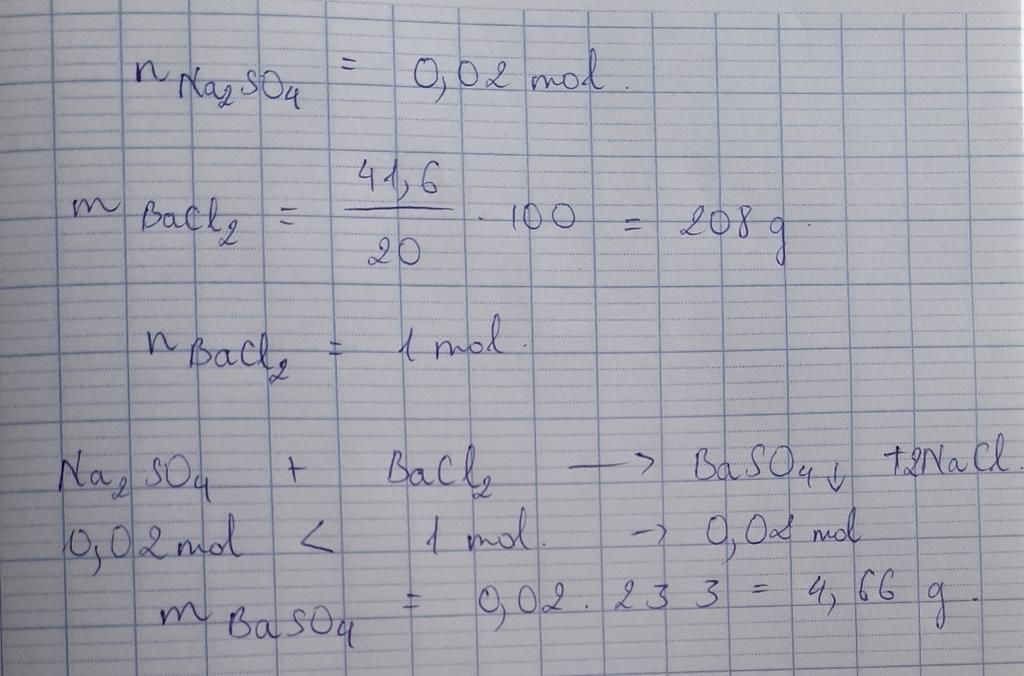 n Na₂SO₄ = 0,02 mol.
m BaCl₂ = 41,6 / 20 . 100 = 208 g.
n BaCl₂ = 1 mol.
Na₂SO₄ + BaCl₂ —> BaSO₄↓ +2NaCl.
0,02 mol < 1 mol. -> 0,02 mol
m BaSO₄ = 0,02 . 233 = 4,66 g.